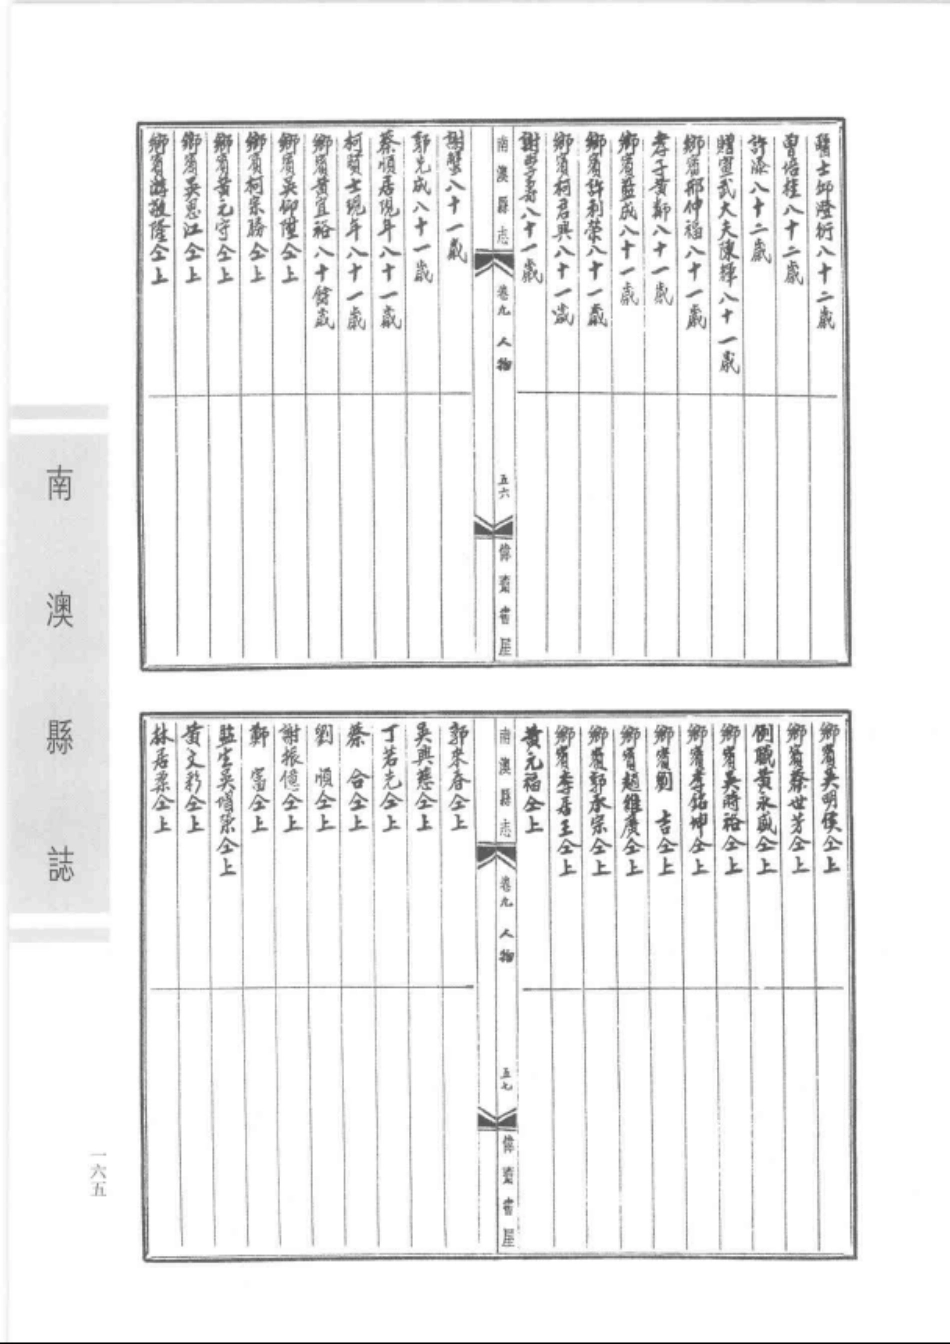 醫士邱澄衍八十二歲
曾培桂八十二歲
許添八十二歲
贈宣武大夫陳輝八十一歲
鄉賓邢仲福八十一歲
孝子黃鄰八十一歲
鄉賓莊成八十一歲
鄉賓許利榮八十一歲
鄉賓柯君興八十一歲
謝學壽八十一歲
南澳縣志 卷九 人物 五六 偉齋書屋
謝 八十一歲
郭先成八十一歲
蔡順居現年八十一歲
柯質士現年八十一歲
鄉賓黃宜裕八十餘歲
鄉賓吳仰陞仝上
鄉賓柯宗勝仝上
鄉賓黃元守仝上
鄉賓吳恩江仝上
鄉賓游敬隆仝上
鄉賓吳明侯仝上
鄉賓蔡世芳仝上
例職黃永盛仝上
鄉賓吳時裕仝上
鄉賓李銘坤仝上
鄉賓劉 吉仝上
鄉賓趙維廣仝上
鄉賓郭承宗仝上
鄉賓李居王仝上
黃元福仝上
南澳縣志 卷九 人物 五七 偉齋書屋
郭來春仝上
吳興慈仝上
丁若光仝上
蔡 合仝上
劉 順仝上
謝振億仝上
鄭 富仝上
監生吳 榮仝上
黃文彩仝上
林居票仝上
南澳縣誌
一六五